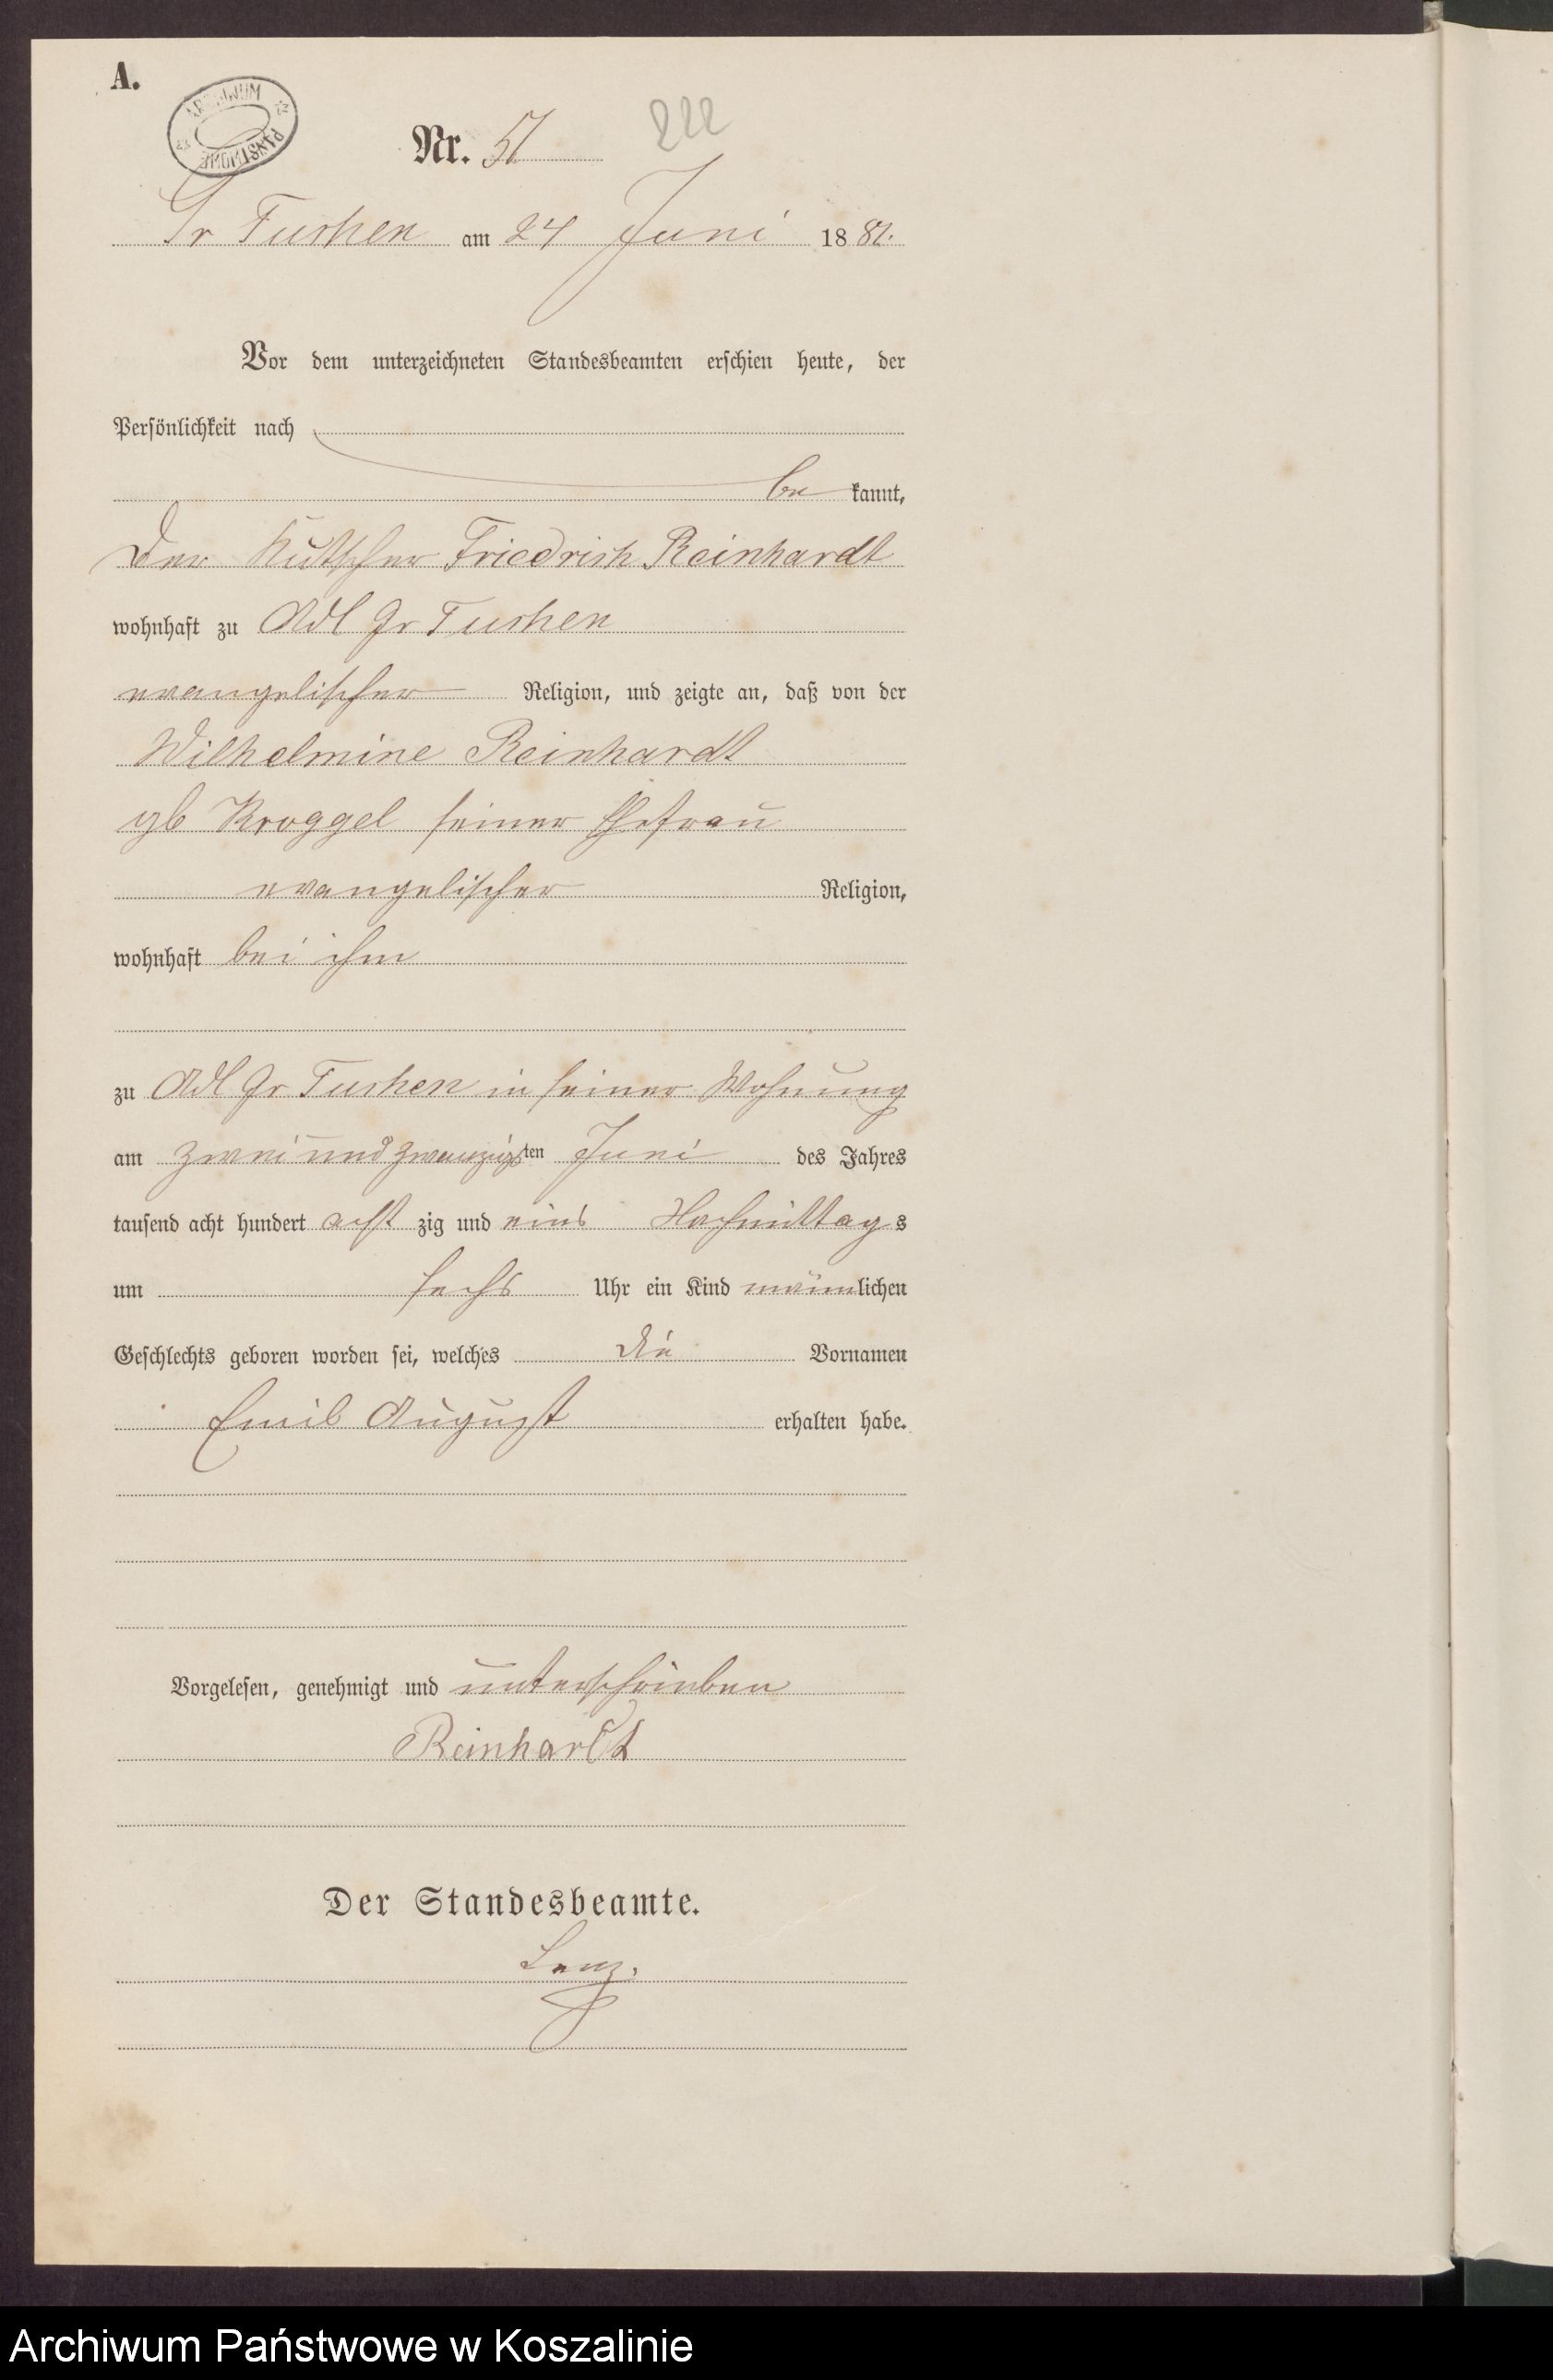 A.
ARCHIWUM PAŃSTWOWE
Nr. 51
222
Gr Tuchen am 24 Juni 1881.
Vor dem unterzeichneten Standesbeamten erschien heute, der
Persönlichkeit nach
be kannt,
Der Kutscher Friedrich Reinhardt
wohnhaft zu Adl Gr Tuchen
evangelischer Religion, und zeigte an, daß von der
Wilhelmine Reinhardt
gb Kroggel seiner Ehefrau
evangelischer Religion,
wohnhaft bei ihm
zu Adl Gr Tuchen in seiner Wohnung
am zwei und zwanzigsten Juni des Jahres
tausend acht hundert acht zig und eins Nachmittags
um sechs Uhr ein Kind männlichen
Geschlechts geboren worden sei, welches die Vornamen
Emil August erhalten habe.
Vorgelesen, genehmigt und unterschrieben
Reinhardt
Der Standesbeamte.
Lenz.
Archiwum Państwowe w Koszalinie